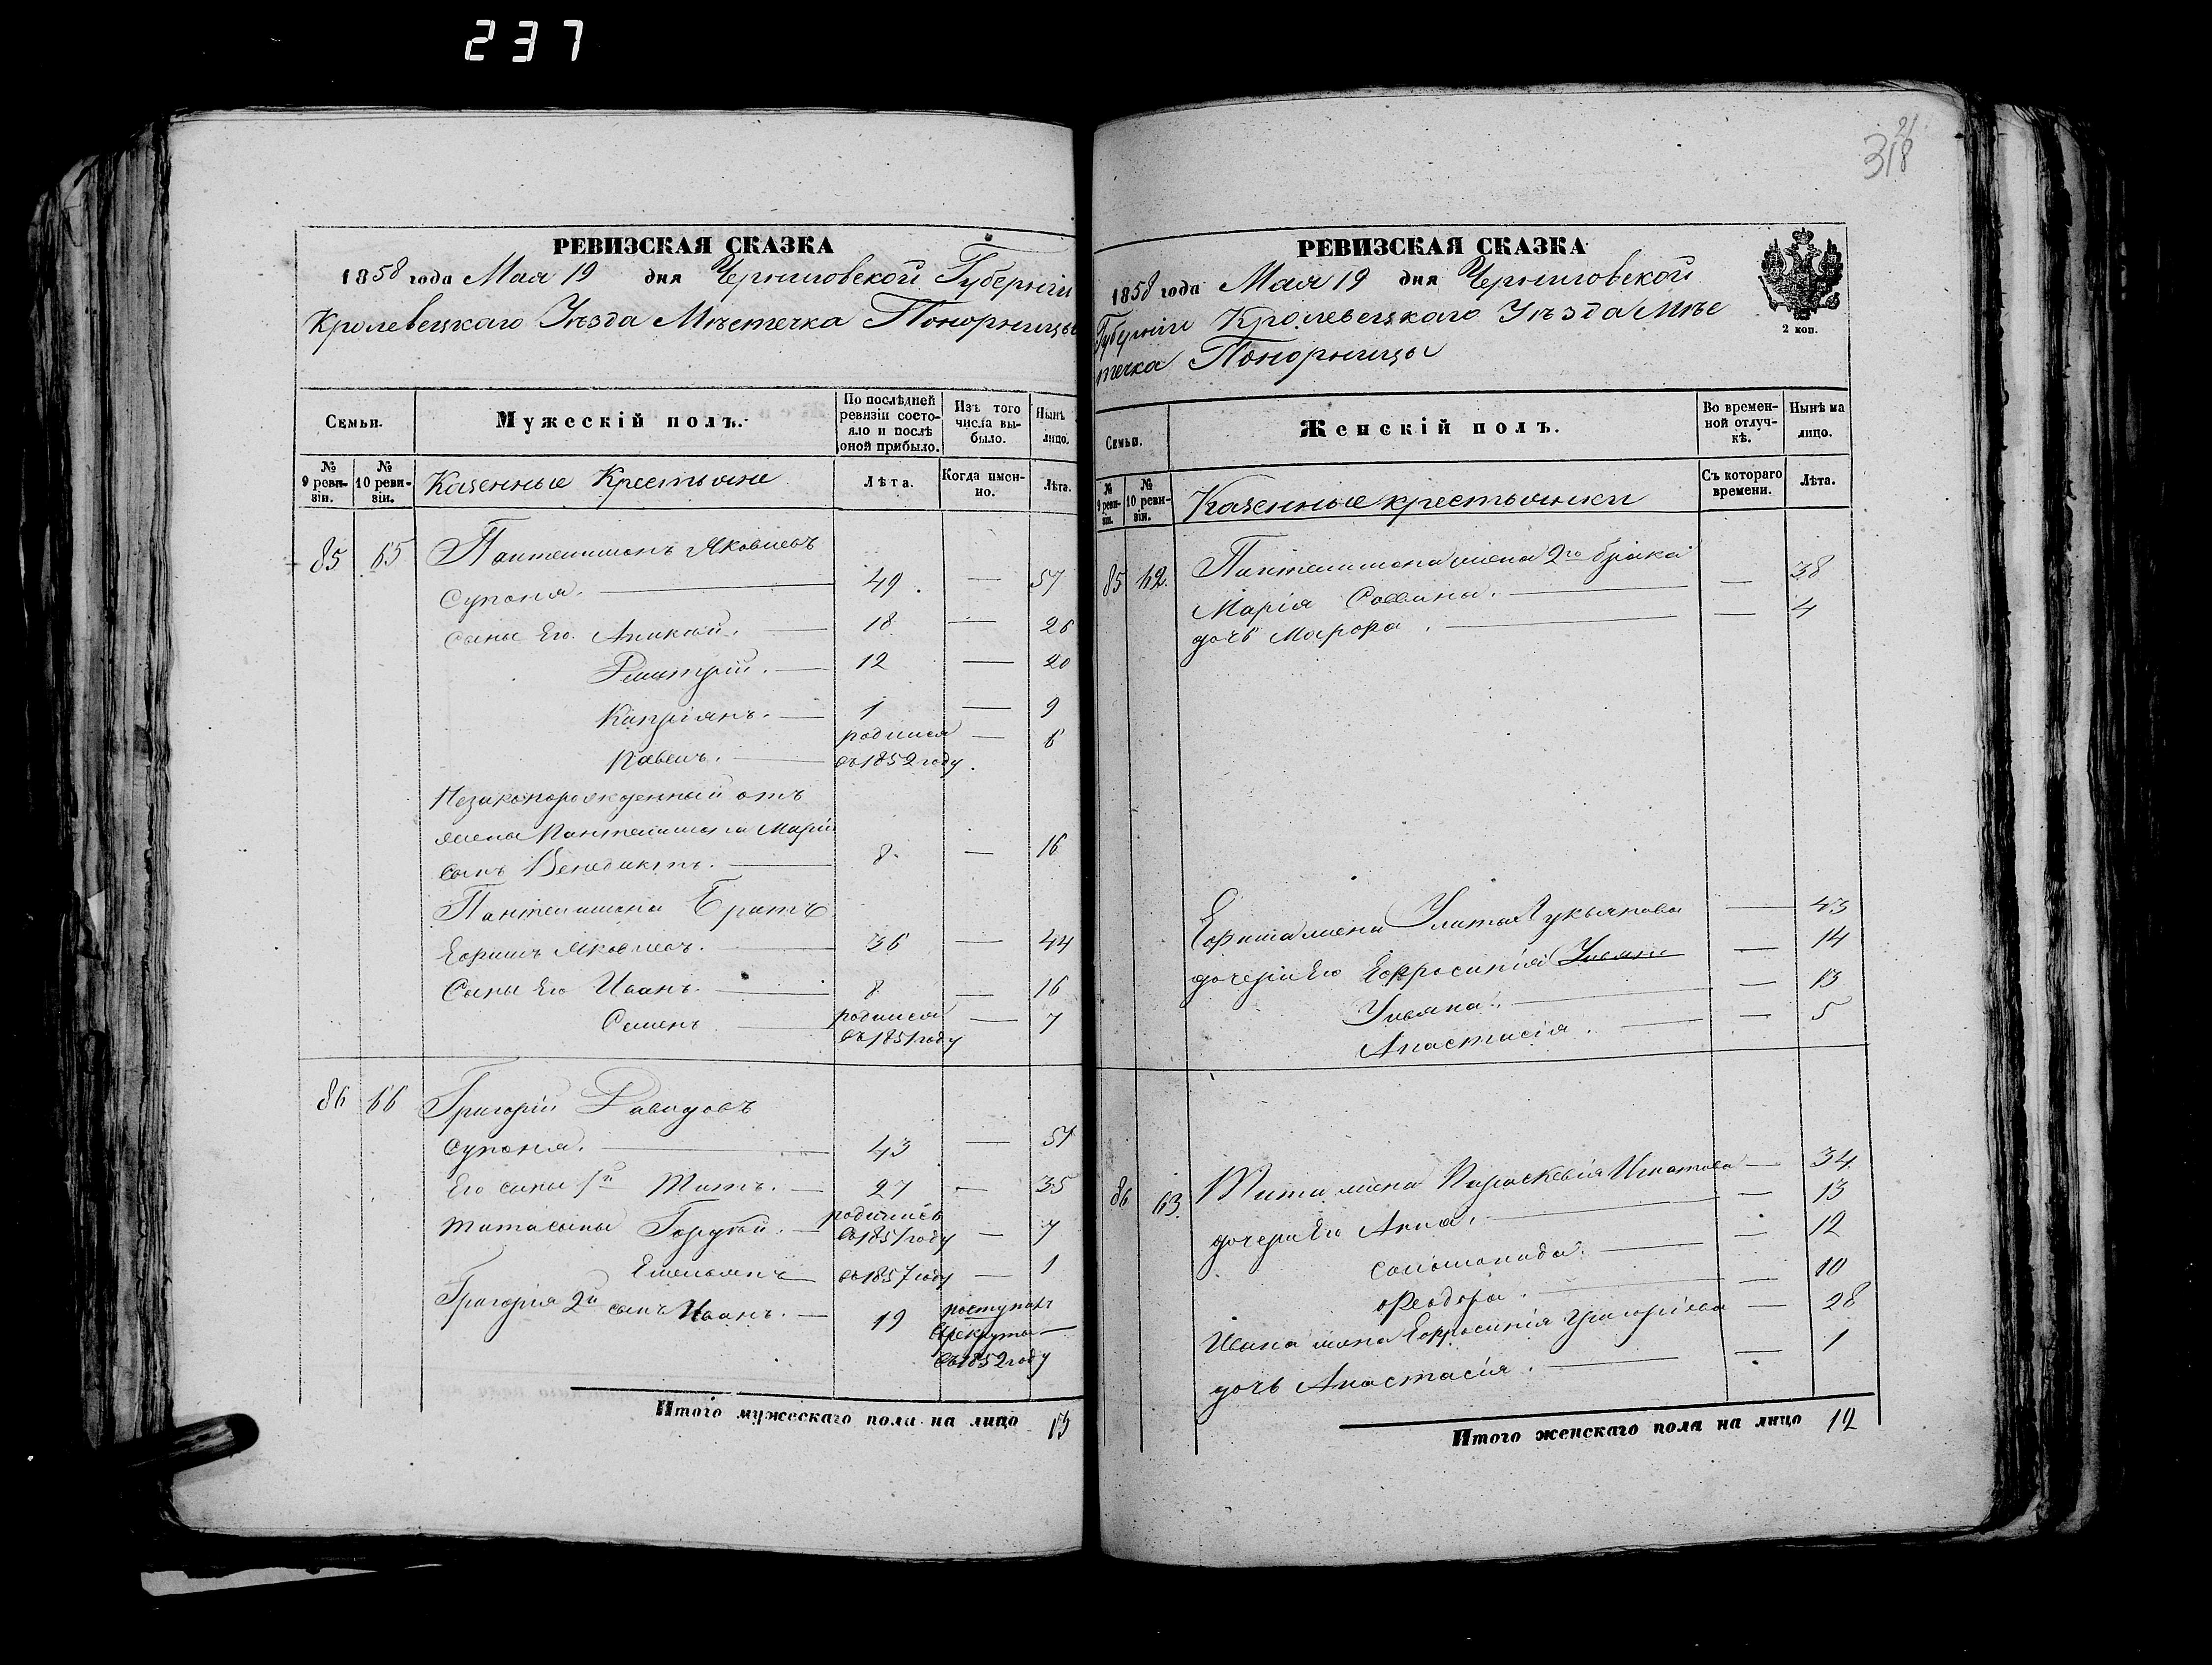 237
318
РЕВИЗСКАЯ СКАЗКА
1858 года Мая 19 дня Черниговской Губерніи
Кролевецкаго Уѣзда Мѣстечка Понорницы
Семьи.
Мужескій полъ.
По послѣдней ревизіи состояло и послѣ оной прибыло.
Изъ того числа выбыло.
Нынѣ на лицо.
№ 9 ревизіи.
№ 10 ревизіи.
Казенные Крестьяне
Лѣта.
Когда именно.
Лѣта.
85 65 Пантелимонъ Яковлевъ
Супоня. 49 — 57
Сыны Его 18 — 26
Дмитрій. 12 — 20
Капріянъ. 1 — 9
Павелъ. родился въ 1852 году — 6
Незаконорожденный отъ
жены Пантелимона Маріи
сынъ Венедиктъ. 8 — 16
Пантелимона Братъ
Ефимъ Яковлевъ. 36 — 44
Сыны Его Иванъ. 8 — 16
Семенъ родился въ 1851 году — 7
86 66 Григорій Давидовъ
Супоня. 43 — 51
Его сыны 1й Титъ. 27 — 35
Тита сыны Гордѣй. родился въ 1851 году — 7
Емельянъ въ 1857 году — 1
Григорія 2й сынъ Иванъ. 19 поступилъ
в рекруты
въ 1852 году
Итого мужескаго пола на лицо 13
РЕВИЗСКАЯ СКАЗКА
1858 года Мая 19 дня Черниговской
Губерніи Кролевецкаго Уѣзда Мѣс
течка Понорницы
2 коп.
Семьи.
Женскій полъ.
Во временной отлучкѣ.
Нынѣ на лицо.
№ 9 ревизіи.
№ 10 ревизіи.
Казенные крестьянки
Съ котораго времени.
Лѣта.
85 62. Пантелимона жена 2го брака
Марія Саввина. — 38
дочь Мафра. — 4
Ефима жена Улита Лукьянова — 43
дочери Его Ефросинія Ульян — 14
Ульяна. — 13
Анастасія. — 5
86 63. Тита жена Параскевія Игнатова — 34
дочери Его Анна. — 13
Соломонида. — 12
Феодора. — 10
Ивана жена Ефросинія Григорьева — 28
дочь Анастасія. — 1
Итого женскаго пола на лицо 12